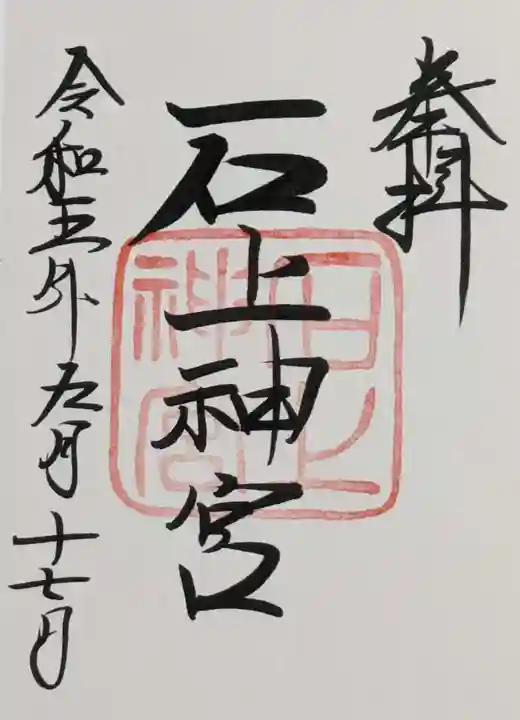 奉拝
石上神宮
石上神宮
令和五年五月十七日